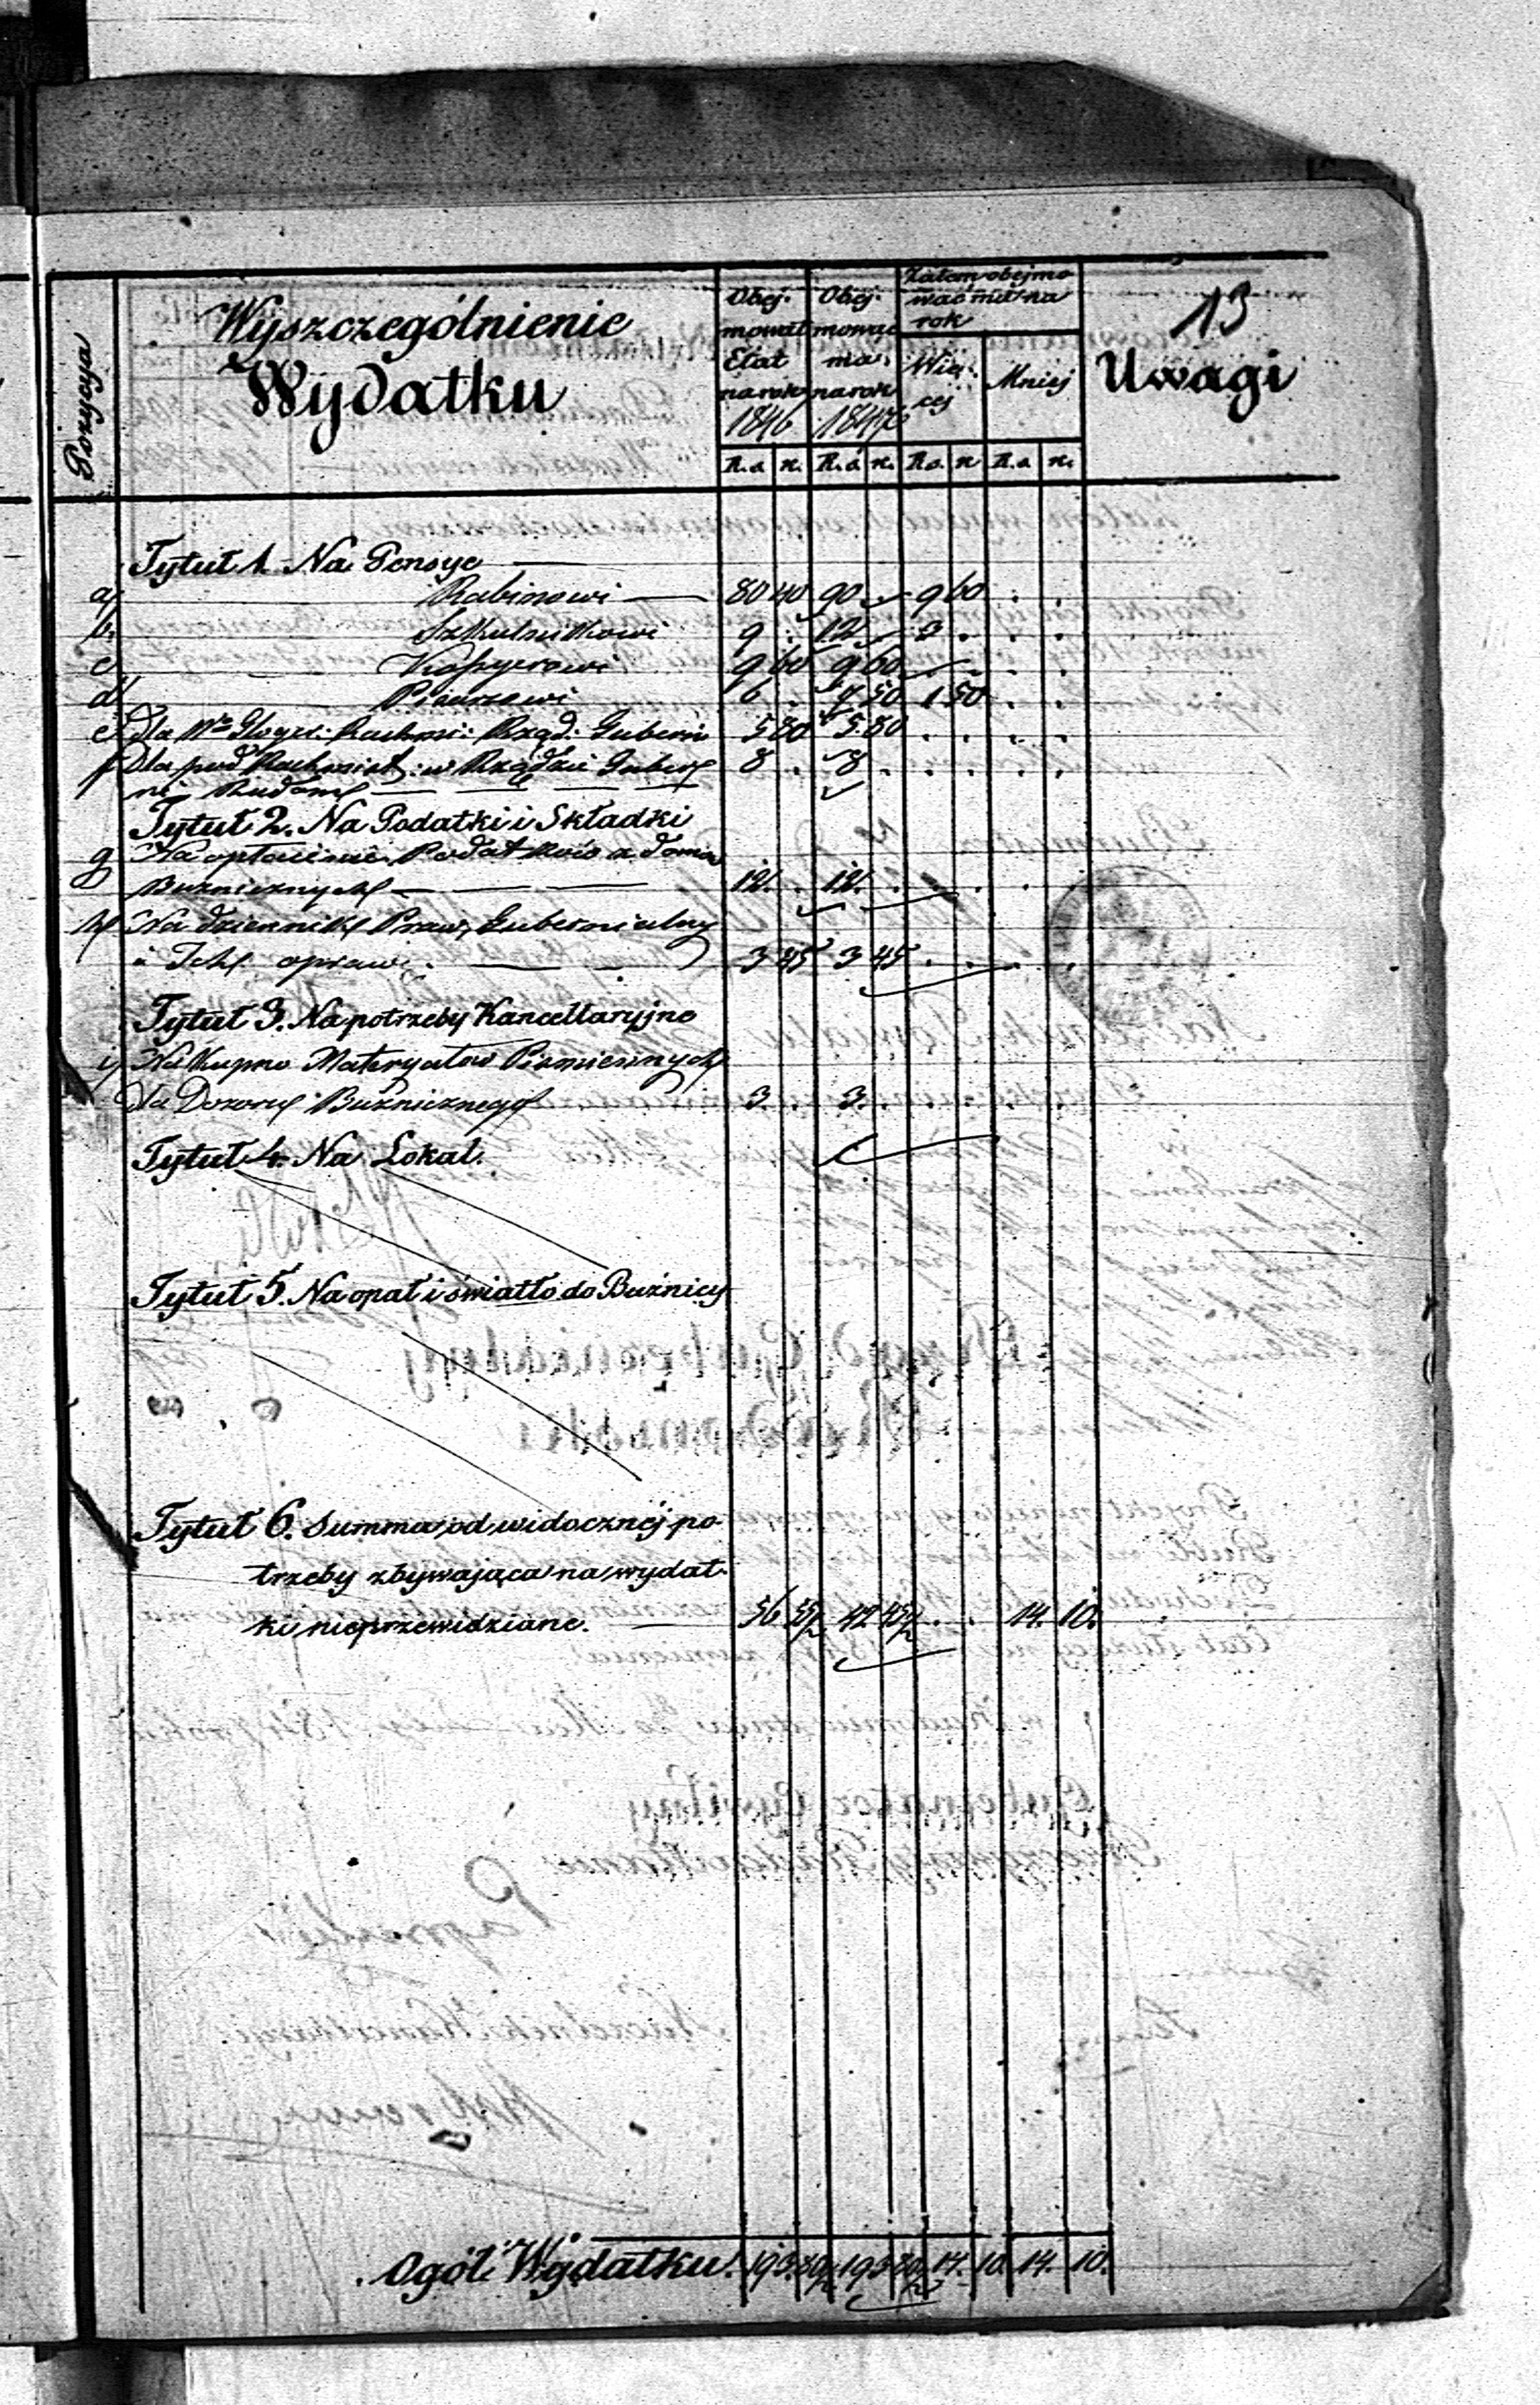 13
Pozycya
Wyszczególnienie
Wydatku
Obej-
mował
Etat
na rok
1846
Obej-
mować
ma
na rok
1847
Zatem obejmo
wać ma na
rok
Wię-
cej
Mniej
Uwagi
R.s. k. R.s. k. R.s. k. R.s. k.
Tytuł 1. Na Pensye
a/ Rabinowi 80 40 90 9 60
b. Szkolnikowi 9 . 12 3 .
c Kassyerowi 9 60 9 60
d Pisarzowi 6 . 7 50 1 50
e Dla Rachmi: Rząd: Gubern 5 80 5 80
f Dla pod Rachmist: w Rządzie Guber
8 . 8 .
Tytuł 2. Na Podatki i Składki
g Na opłacenie Podatków z domów
Bużnicznych 12 . 12 .
h Na dziennik Praw, Gubernialny
i Ich oprawę 3 45 3 45
Tytuł 3. Na potrzeby Kancellaryjne
i Na kupno Materyałów Piśmiennych
dla Dozoru Bużnicznego 3 . 3 .
Tytuł 4. Na Lokal.
Tytuł 5. Na opał i światło do Bużnicy
Tytuł 6. Summa od widocznéj po
trzeby zbywająca na wydat-
ki nieprzewidziane. 56 42 14. 10.
Ogół Wydatku. 193 193 14. 10. 14. 10.